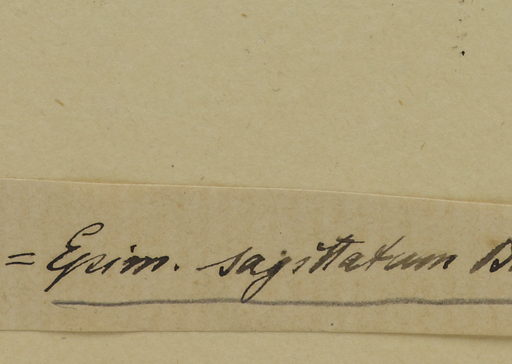 = Epim. sagittatum